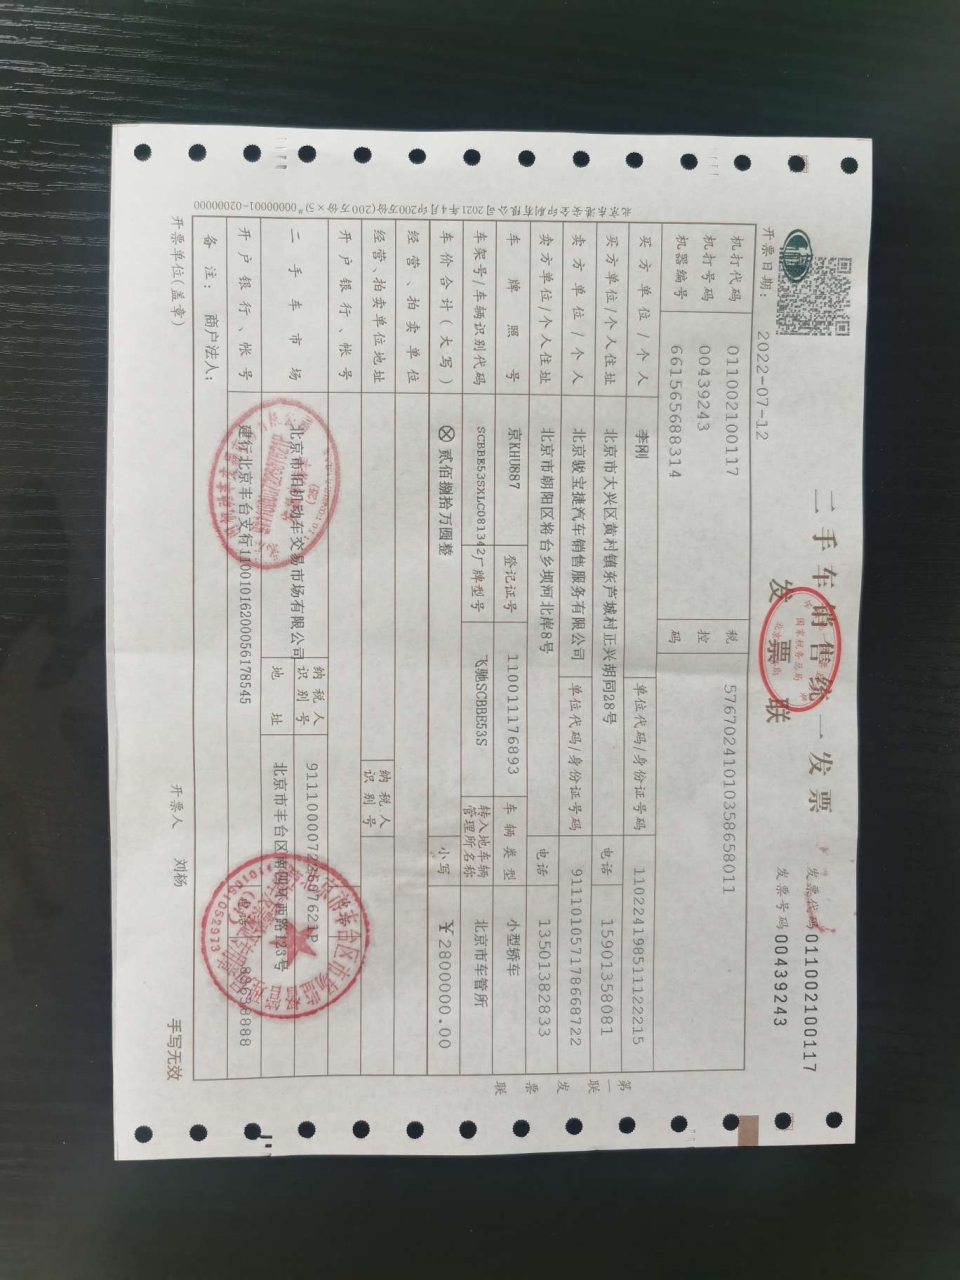 二手车销售统一发票
发票联
发票代码 011002100117
发票号码 00439243
开票日期： 2022-07-12
机打代码 011002100117
机打号码 00439243
机器编号 661565688314
税控码 57670241010358658011
买方单位/个人 李刚 单位代码/身份证号码 110224198511122215
买方单位/个人住址 北京市大兴区黄村镇东芦城村正兴胡同28号 电话 15901358081
卖方单位/个人 北京骏宝捷汽车销售服务有限公司 单位代码/身份证号码 911101057178668722
卖方单位/个人住址 北京市朝阳区将台乡坝河北岸8号 电话 13501382833
车牌照号 京KHU887 登记证号 110011176893 车辆类型 小型轿车
车架号/车辆识别代码 SCBBE53SXLC081342 厂牌型号 飞驰SCBBE53S 转入地车辆管理所名称 北京市车管所
车价合计(大写) ⊗贰佰捌拾万圆整 小写 ￥2800000.00
经营、拍卖单位
经营、拍卖单位地址 纳税人识别号
开户银行、帐号
二手车市场 纳税人识别号
地址 北京市丰台区南四环西路123号
开户银行、帐号 建行北京丰台支行11001016200056178545
备注： 商户法人：
开票单位(盖章) 开票人 刘杨 手写无效
第一联 发票联
北京东港安全印刷有限公司2021年4月印200万份(200万份×5)*00000001-02000000